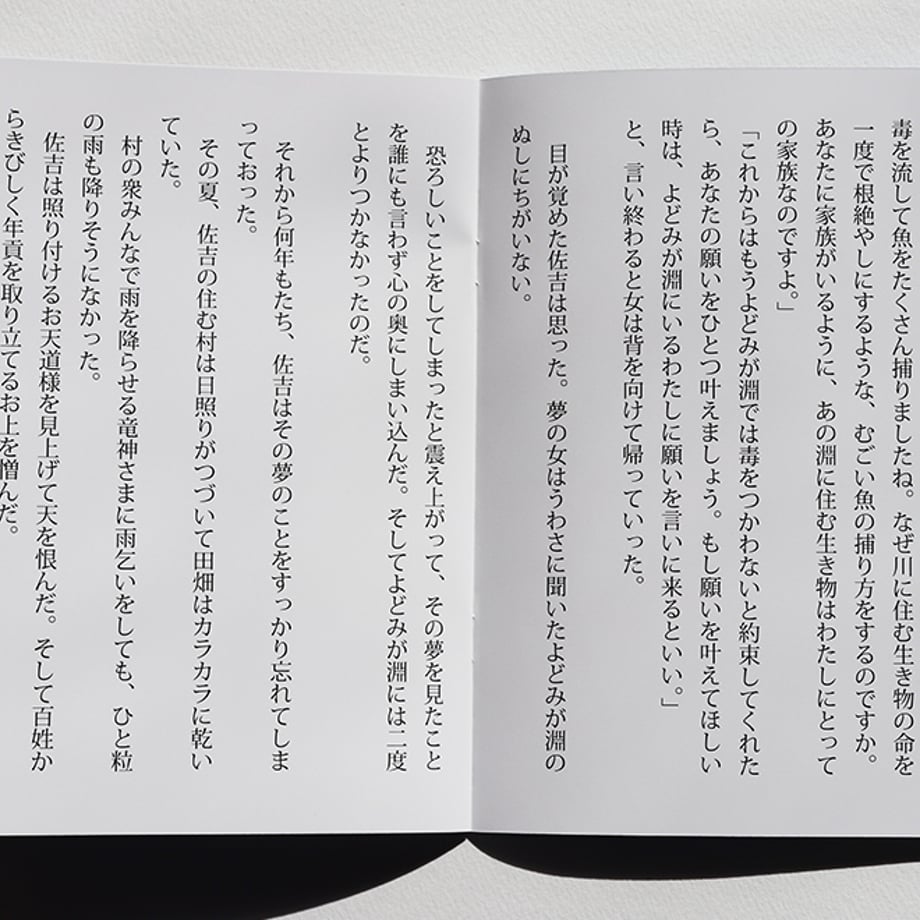 毒を流して魚をたくさん捕りましたね。なぜ川に住む生き物の命を
一度で根絶やしにするような、むごい魚の捕り方をするのですか。
あなたに家族がいるように、あの淵に住む生き物はわたしにとって
の家族なのですよ。」
「これからはもうよどみが淵では毒をつかわないと約束してくれた
ら、あなたの願いをひとつ叶えましょう。もし願いを叶えてほしい
時は、よどみが淵にいるわたしに願いを言いに来るといい。」
と、言い終わると女は背を向けて帰っていった。
目が覚めた佐吉は思った。夢の女はうわさに聞いたよどみが淵の
ぬしにちがいない。
恐ろしいことをしてしまったと震え上がって、その夢を見たこと
を誰にも言わず心の奥にしまい込んだ。そしてよどみが淵には二度
とよりつかなかったのだ。
それから何年もたち、佐吉はその夢のことをすっかり忘れてしま
っておった。
その夏、佐吉の住む村は日照りがつづいて田畑はカラカラに乾い
ていた。
村の衆みんなで雨を降らせる竜神さまに雨乞いをしても、ひと粒
の雨も降りそうになかった。
佐吉は照り付けるお天道様を見上げて天を恨んだ。そして百姓か
らきびしく年貢を取り立てるお上を憎んだ。